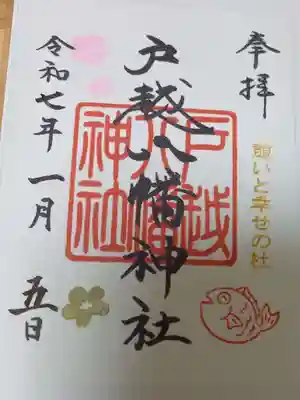 奉拝
願いと幸せの社
戸越八幡神社
戸越八幡神社
令和七年一月五日